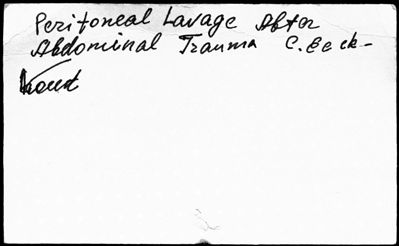 Peritoneal Lavage After
Abdominal Trauma C. Beck-